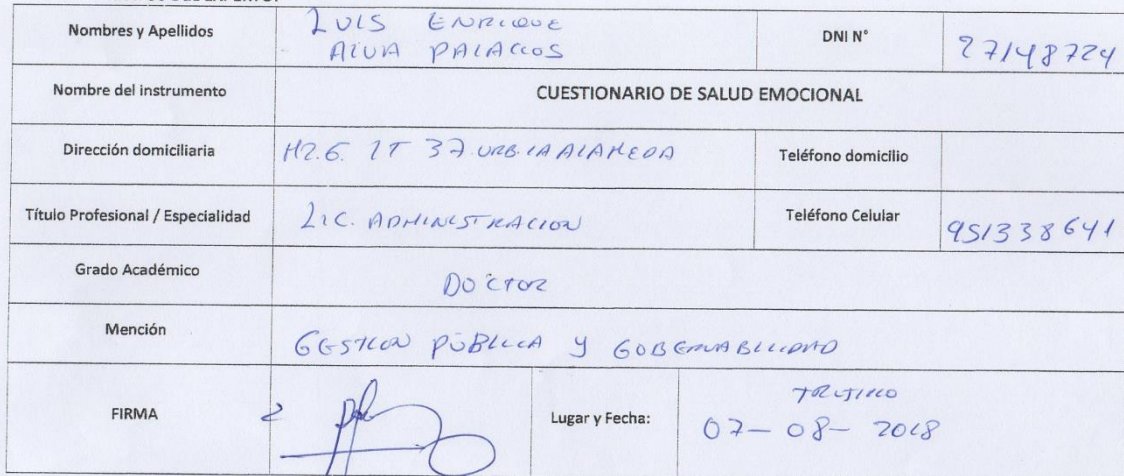 Nombres y Apellidos
LUIS ENRIQUE
ALVA PALACIOS
DNI N°
27148724
Nombre del instrumento
CUESTIONARIO DE SALUD EMOCIONAL
Dirección domiciliaria
MZ.G. LT 37. URB. LA ALAMEDA
Teléfono domicilio
Título Profesional / Especialidad
LIC. ADMINISTRACION
Teléfono Celular
951338641
Grado Académico
DOCTOR
Mención
GESTION PÚBLICA Y GOBERNABILIDAD
FIRMA
Lugar y Fecha:
TRUJILLO
07-08-2018